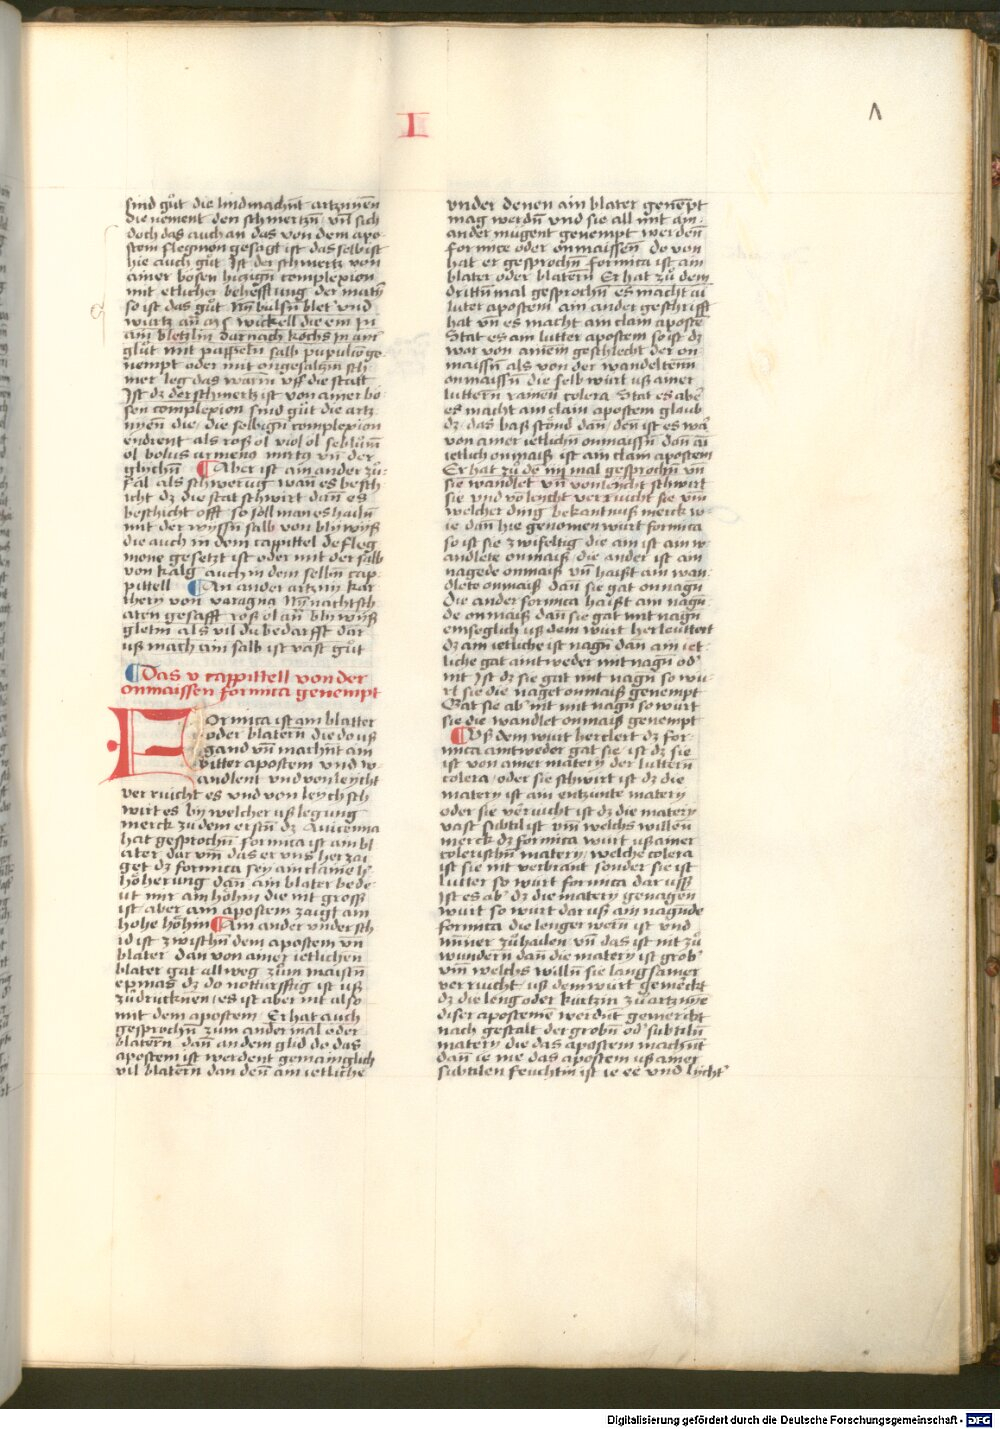 I
Λ
sind gůt die lind machn̄t artznien
die nement den schmertzn̄ vn̄ sich
doch das auch an das von dem apo-
stem flegmon gesagt ist das selb ist
hie auch gůt Ist der schmertz von
ainer bösen hiczign̄ complexion
mit etlicher behefftung der matery
so ist das gůt Nim bulsn̄ blet vnd
wurtz an ayß wickell die ein jn
ain bletzlin darnach kochs in ain̄
glůt mit pappeln salb pupulio ge
nempt oder mit ongesaltzm sch
mer leg das warm vff die statt
Ist dz der schmertz ist von ainer bö
sen complexion sind gůt die artz
nyen die die selbign̄ complexion
endrent als roß öl viol öl seblům̄
öl bolus armeno mirtγ vn̄ der
glychn̄ Aber ist ain ander zů-
fal als schwerug wan es besch
icht dz die stat schwirt dan̄ es
beschicht offt so soll man es hailn̄
mit der wyssn̄ salb von blywyß
die auch in dem cappittel de fleg
mone gesetzt ist oder mit der salb
von kalg auch in dem selbn̄ cap-
pittell Ain ander artzny kar
thery von varagna Nym̄ nachtsch
aten gesafft roß öl an̄ blywyß
gletin als vil du bedarfft dar
uß mach ain salb ist vast gůt
Das v cappittell von der
onmaissen formica genempt
Formica ist ain blatter
oder blatern̄ die do uß
gand vn̄ machn̄t ain
bitter apostem vnd w-
andlent vnd von leycht
verrucht es vnd von leych sch
wirt es by welcher uß legung
merck zu dem erstn̄ dz Auicenna
hat gesprochn̄ formica ist ain bl
ater dar vm̄ das er vns her zai
get dz formica sey ain claine h-
höherung dan̄ ain blater bede-
ut mir ain höhin die nit groß
ist aber ain apostem zaigt ain
hohe höhin Ain ander vndersch
id ist zwisthn̄ dem apostem vn̄
blater dan von ainer ietlichen
blater gat all weg zům maistn̄
epinas dz do notturfftig ist uß
zůdrucknen es ist aber nit also
mit dem apostem Er hat auch
gesprochn̄ zum andermal oder
blatern̄ dan̄ an dem glid do das
apostem ist werdent gemainglich
vil blatern̄ dan den̄ ain ietliche
vnder denen ain blater genēpt
mag werdn̄ vnd sie all mit ain-
ander mügent genempt werden̄
formice oder onmaissen̄ do von
hat er gesprochn̄ formica ist ain
blater oder blatern̄ Er hat zů dem
drittn̄ mal gesprochn̄ es macht ai
luter apostem ain ander geschrifft
hat vn̄ es macht ain clain aposte
Stat es ain lutter apostem so ist dz
war von ainem geschlecht der on
maissn̄ als von der wandelten̄
onmaissn̄ die selb würt uß ainer
luttern rainen̄ colera Stat es aber
es macht ain clain apostem glaub
dz das baß stönd dan̄ den̄ ist es wa
von ainer ietlichn̄ onmaissn̄ dan̄ ai
ietlich onmaiß ist ain clain apostem
Er hat zů de iiij mal gesprochn̄ vn̄
sie wandlet vn̄ von leicht schwirt
sie vnd vō leicht verrucht sie vm̄
welcher ding bekantnuß merck w-
ie dan̄ hie genomen würt formica
so ist sie zwifeltig die ain ist ain w-
andlete onmaiß die ander ist ain
nagede onmaiß vn̄ haißt ain wan-
dlete onmaiß dan̄ sie gat on nagn̄
Die ander formica haißt ain nagn̄
de onmaiß dan̄ sie gat mit nagn̄
einseglich uß dem würt her leuttert
dz ain ietliche ist nagn̄ dan ain iet-
liche gat aintweder mit nagn̄ od'
nit Ist dz sie gat mit nagn̄ so wü-
rt sie die naget onmaiß genempt
Gat sie ab' nit mit nagn̄ so würt
sie die wandlet onmaiß genempt
Uß dem würt herclert dz for-
mica aintweder gat sie ist dz sie
ist von ainer matery der luttern̄
colera / oder sie schwirt ist dz die
matery ist ain entzunte matery
oder sie verrücht ist dz die matery
vast subtil ist vm̄ welchs willen̄
merck dz formica würt uß ainer
coleristhn̄ matery / welche colera
ist sie nit verbrant sonder sie ist
lutter so würt formica dar uß
Ist es ab' dz die matery genagen
würt so würt dar uß ain nagn̄de
formica die lenger wern̄ ist vnd
minner zůhailen vn̄ das ist nit zů
wundern̄ dan̄ die matery ist grob'
vm̄ welchs willn̄ sie langsamer
verrucht uß dem würt gemerckt
dz die leng oder kurtzin zů artznne
diser aposteme werdn̄t gemerckt
nach gestalt der grobn̄ od' subtiln̄
matery die das apostem machn̄t
dan̄ ie me das apostem uß ainer
subtilen feuchtin ist ie ee vnd lycht'
Digitalisierung gefördert durch die Deutsche Forschungsgemeinschaft - DFG